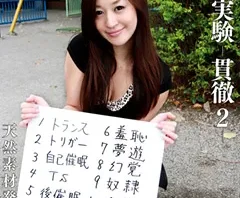 実験 貫徹2
天然素材
1 トランス
2 トリガー
3 自己催眠
4 TS
5 後催眠
6 羞恥
7 夢遊
8 幻覚
9 奴隷